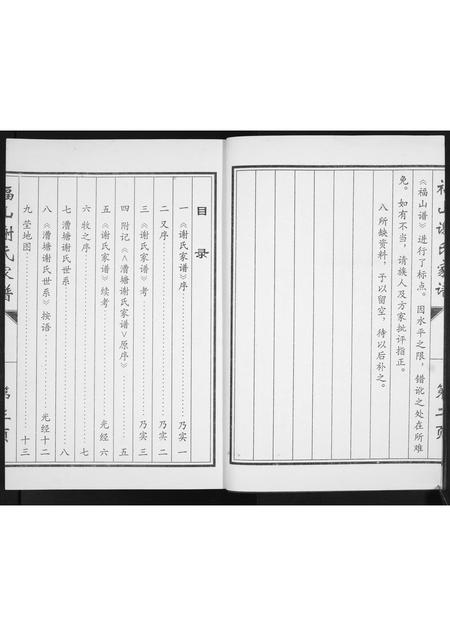 福山谢氏家谱
第二页
《福山谱》进行了标点。因水平之限，错讹之处在所难
免。如有不当，请族人及方家批评指正。
八 所缺资料，予以留空，待以后补之。
目录
一 《谢氏家谱》序 乃实 一
二 又序 乃实 二
三 《谢氏家谱》考 乃实 三
四 附记《<漕塘谢氏家谱>原序》 五
五 《谢氏家谱》续考 光经 六
六 牧之序 七
七 漕塘谢氏世系 八
八 《漕塘谢氏世系》按语 光经 十二
九 茔地图 十三
福山谢氏家谱
第三页